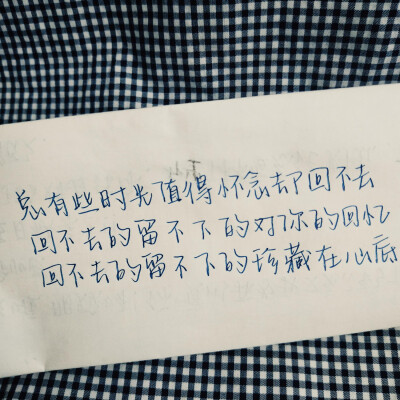 总有些时光值得怀念却回不去
回不去的留不下的对你的回忆
回不去的留不下的珍藏在心底